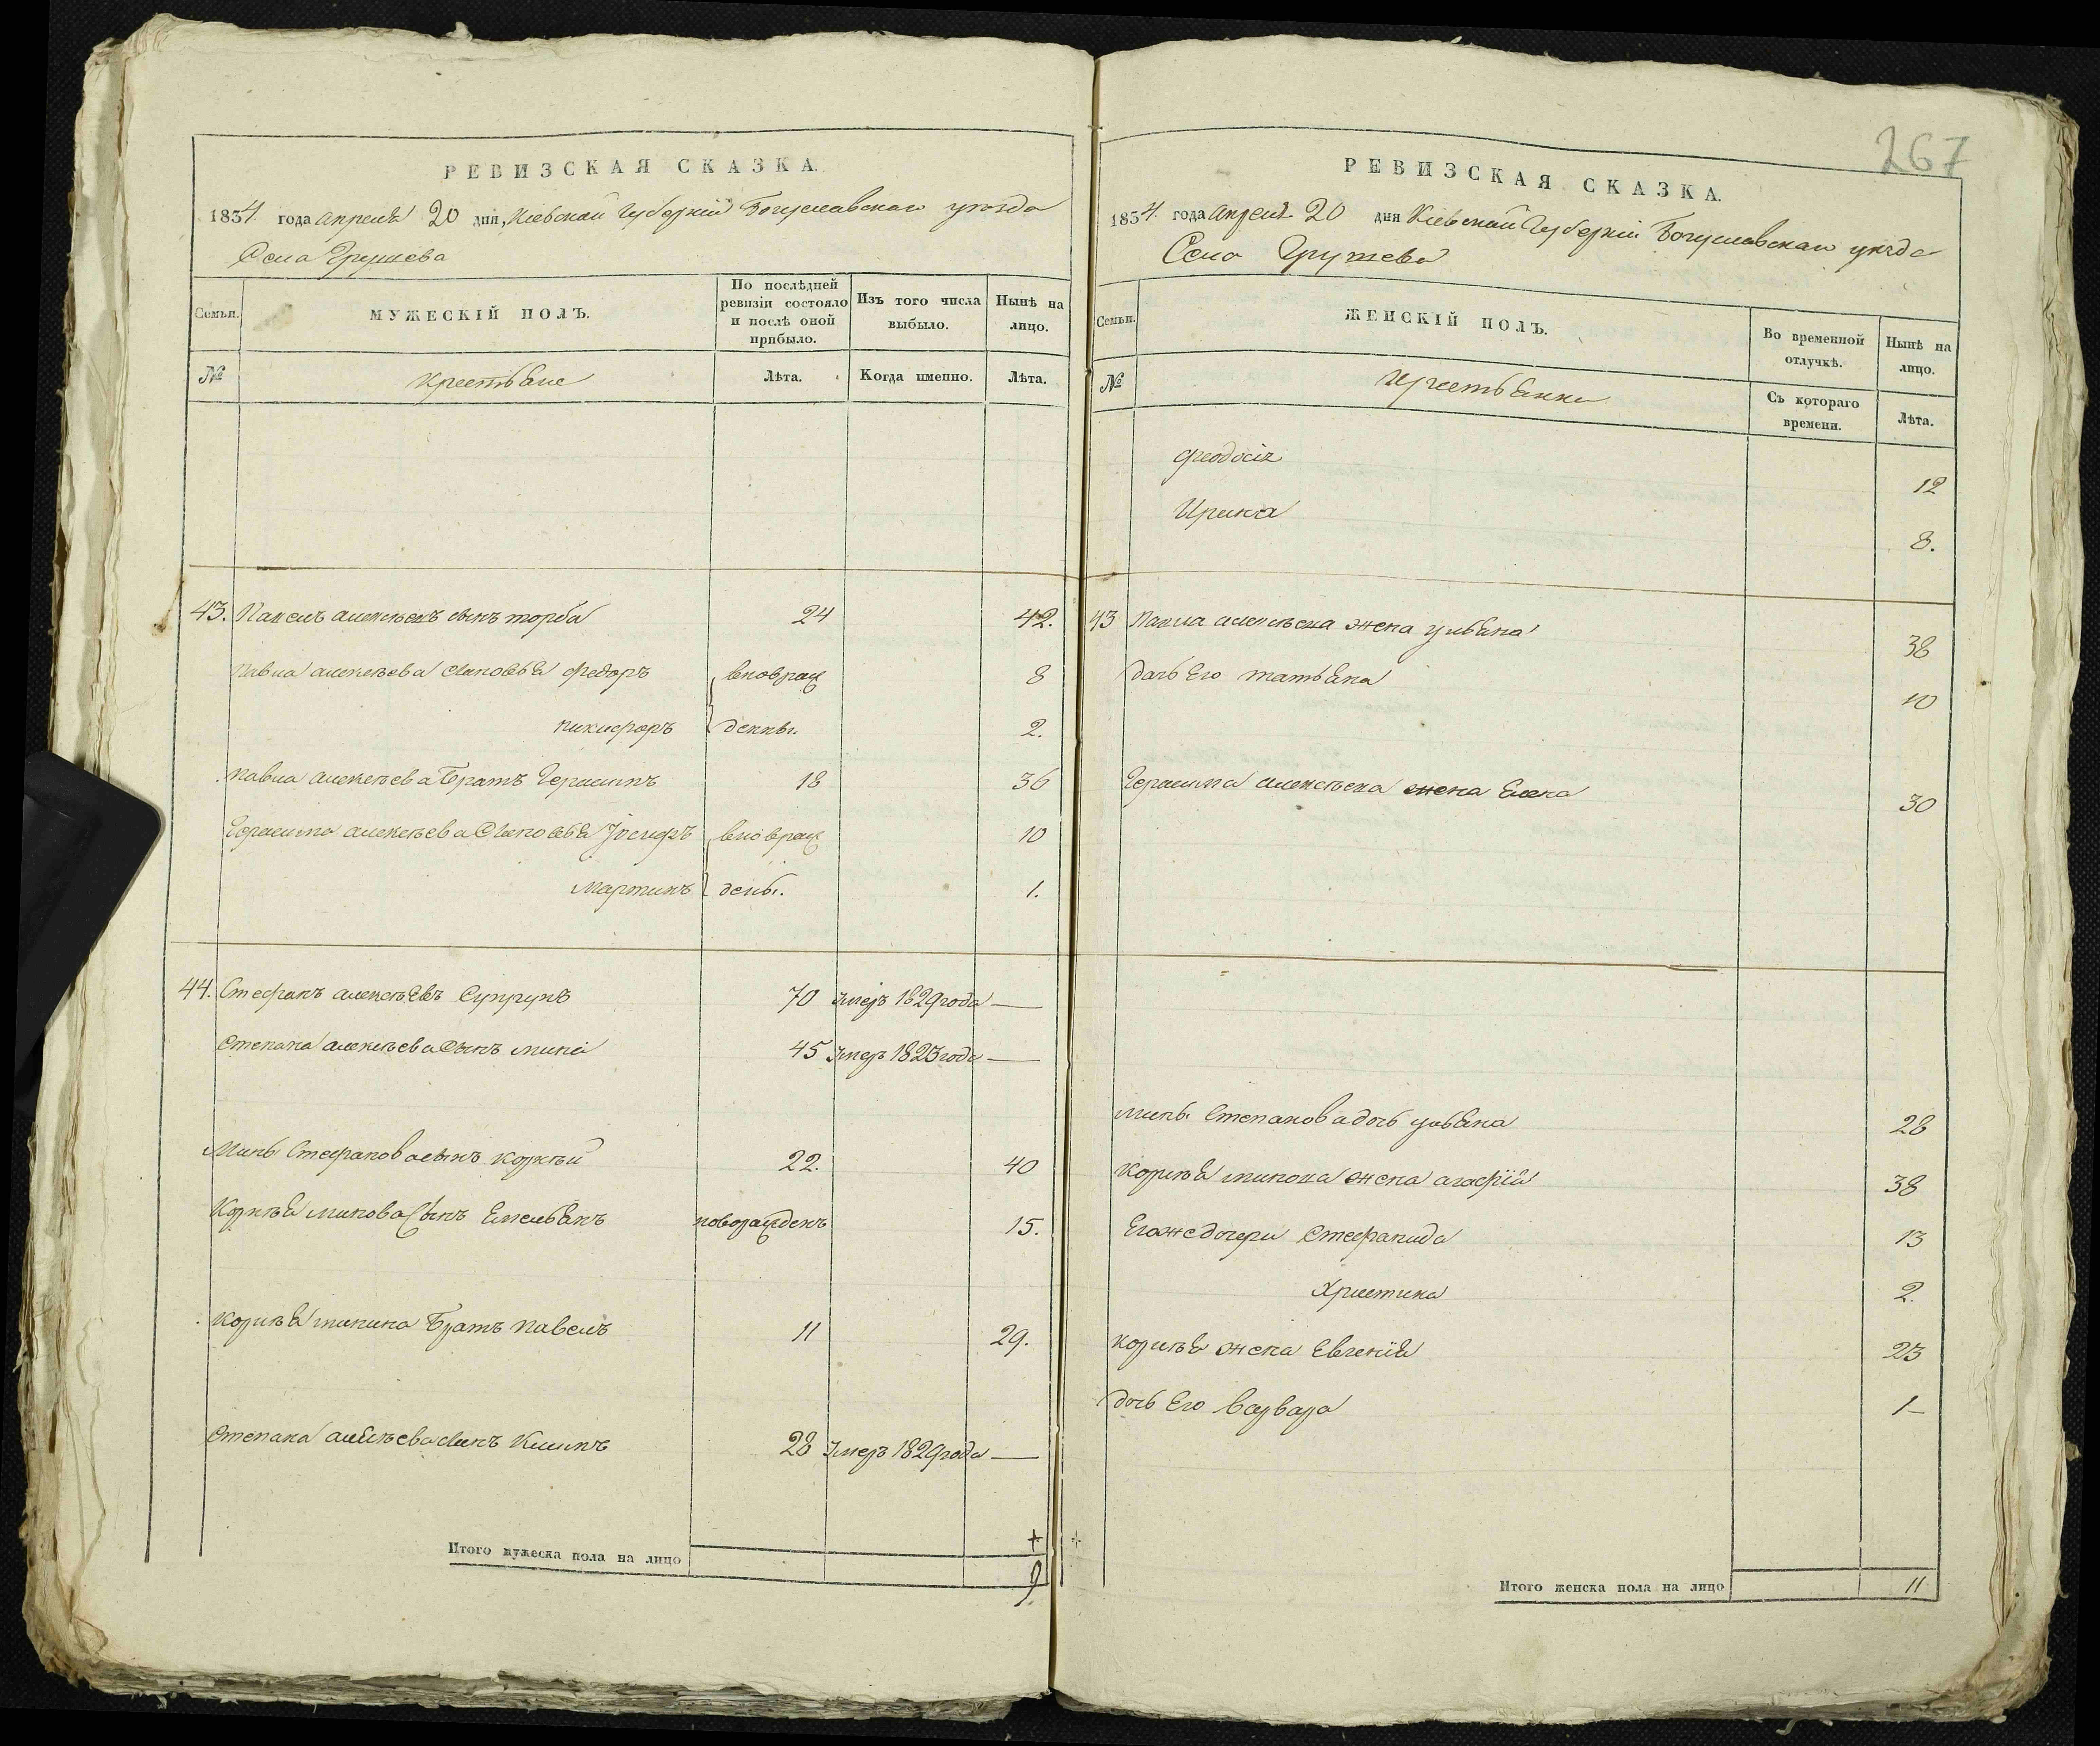 РЕВИЗСКАЯ СКАЗКА.
1834. года апреля 20 дня, Кіевской Губерніи Богуславскаго уезда
Села Грушева
Семьи.
МУЖЕСКІЙ ПОЛЪ.
По послѣдней ревизіи состояло и послѣ оной прибыло.
Изъ того числа выбыло.
Нынѣ на лицо.
№
крестьяне
Лѣта.
Когда именно.
Лѣта.
43. Павелъ алексѣевъ сынъ торба 24 42.
Павла алексѣева сыновья Федоръ вноврож 8
никифоръ денны. 2.
Павла алексѣева Братъ Герасимъ 18 36
Герасима алексѣева Сыновья Іосифъ вноврож 10
мартинъ дены. 1.
44. Стефанъ алексѣевъ Супрунъ 70 умеръ 1829 года —
Степана алексѣева Сынъ мина 45 умеръ 1823 года —
Мины Стефанова сынъ корнѣй 22. 40
Корнѣя минова Сынъ Емельянъ новорожденъ 15.
корнѣя минина Братъ павелъ 11 29.
Степана сынъ Климъ 28 умеръ 1829 года —
Итого мужеска пола на лицо 9
267
РЕВИЗСКАЯ СКАЗКА.
1834. года апреля 20 дня Кіевской Губерніи Богуславскаго уезда
Села Грушева
Семьи.
ЖЕНСКІЙ ПОЛЪ.
Во временной отлучкѣ.
Нынѣ на лицо.
№
крестьянки
Съ котораго времени.
Лѣта.
Феодосія 12
Ирина 8.
43 Павла алексѣева жена ульяна 38
дочь Его татьяна 10
Герасима алексѣева жена Елена 30
мины Степанова дочь ульяна 28
корнѣя минова жена агафія 38
Егожедочери Стефанида 13
Христина 2.
корнѣя жена Евгенія 23
дочь Его варвара 1–
Итого женска пола на лицо 11